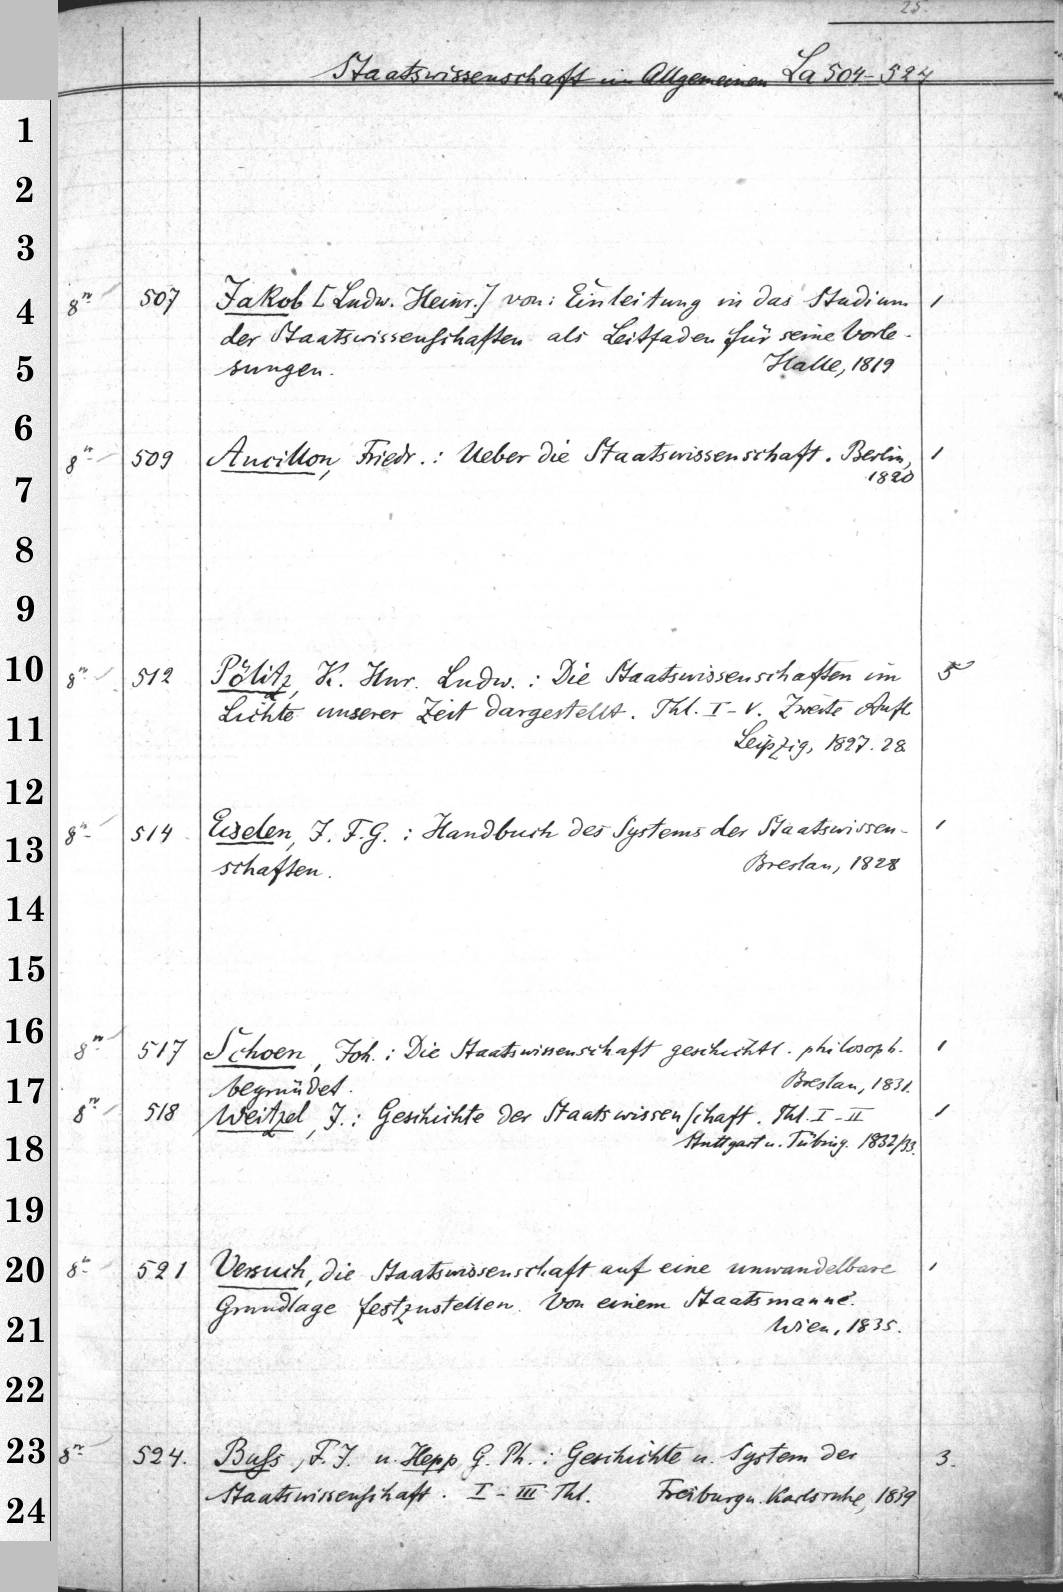 25.
Staatswissenschaft im Allgemeinen La 504-524
1
2
3
4
5
6
7
8
9
10
11
12
13
14
15
16
17
18
19
20
21
22
23
24
8° 507 Jakob [Ludw. Heinr.] von: Einleitung in das Studium 1
der Staatswissenschaften als Leitfaden für seine Vorle-
sungen. Halle, 1819
8° 509 Ancillon, Friedr.: Ueber die Staatswissenschaft. Berlin, 1
1820
8° 512 Pölitz, K. Hnr. Ludw.: Die Staatswissenschaften im 5
Lichte unserer Zeit dargestellt. Thl. I-V. Zweite Aufl
Leipzig, 1827.28
8° 514 Eiselen, J. F. G.: Handbuch des Systems der Staatswissen- 1
schaften. Breslau, 1828
8° 517 Schoen, Joh.: Die Staatswissenschaft geschichtl. philosoph. 1
begründet. Breslau, 1831.
8° 518 Weitzel, J.: Geschichte der Staatswissenschaft. Thl. I-II 1
Stuttgart u. Tübing. 1832/33.
8° 521 Versuch, die Staatswissenschaft auf eine unwandelbare 1
Grundlage festzustellen. Von einem Staatsmanne.
Wien, 1835.
8° 524. Buss, F. J. u. Hepp G. Ph.: Geschichte u. System der 3.
Staatswissenschaft. I-III Thl. Freiburg u. Karlsruhe, 1839